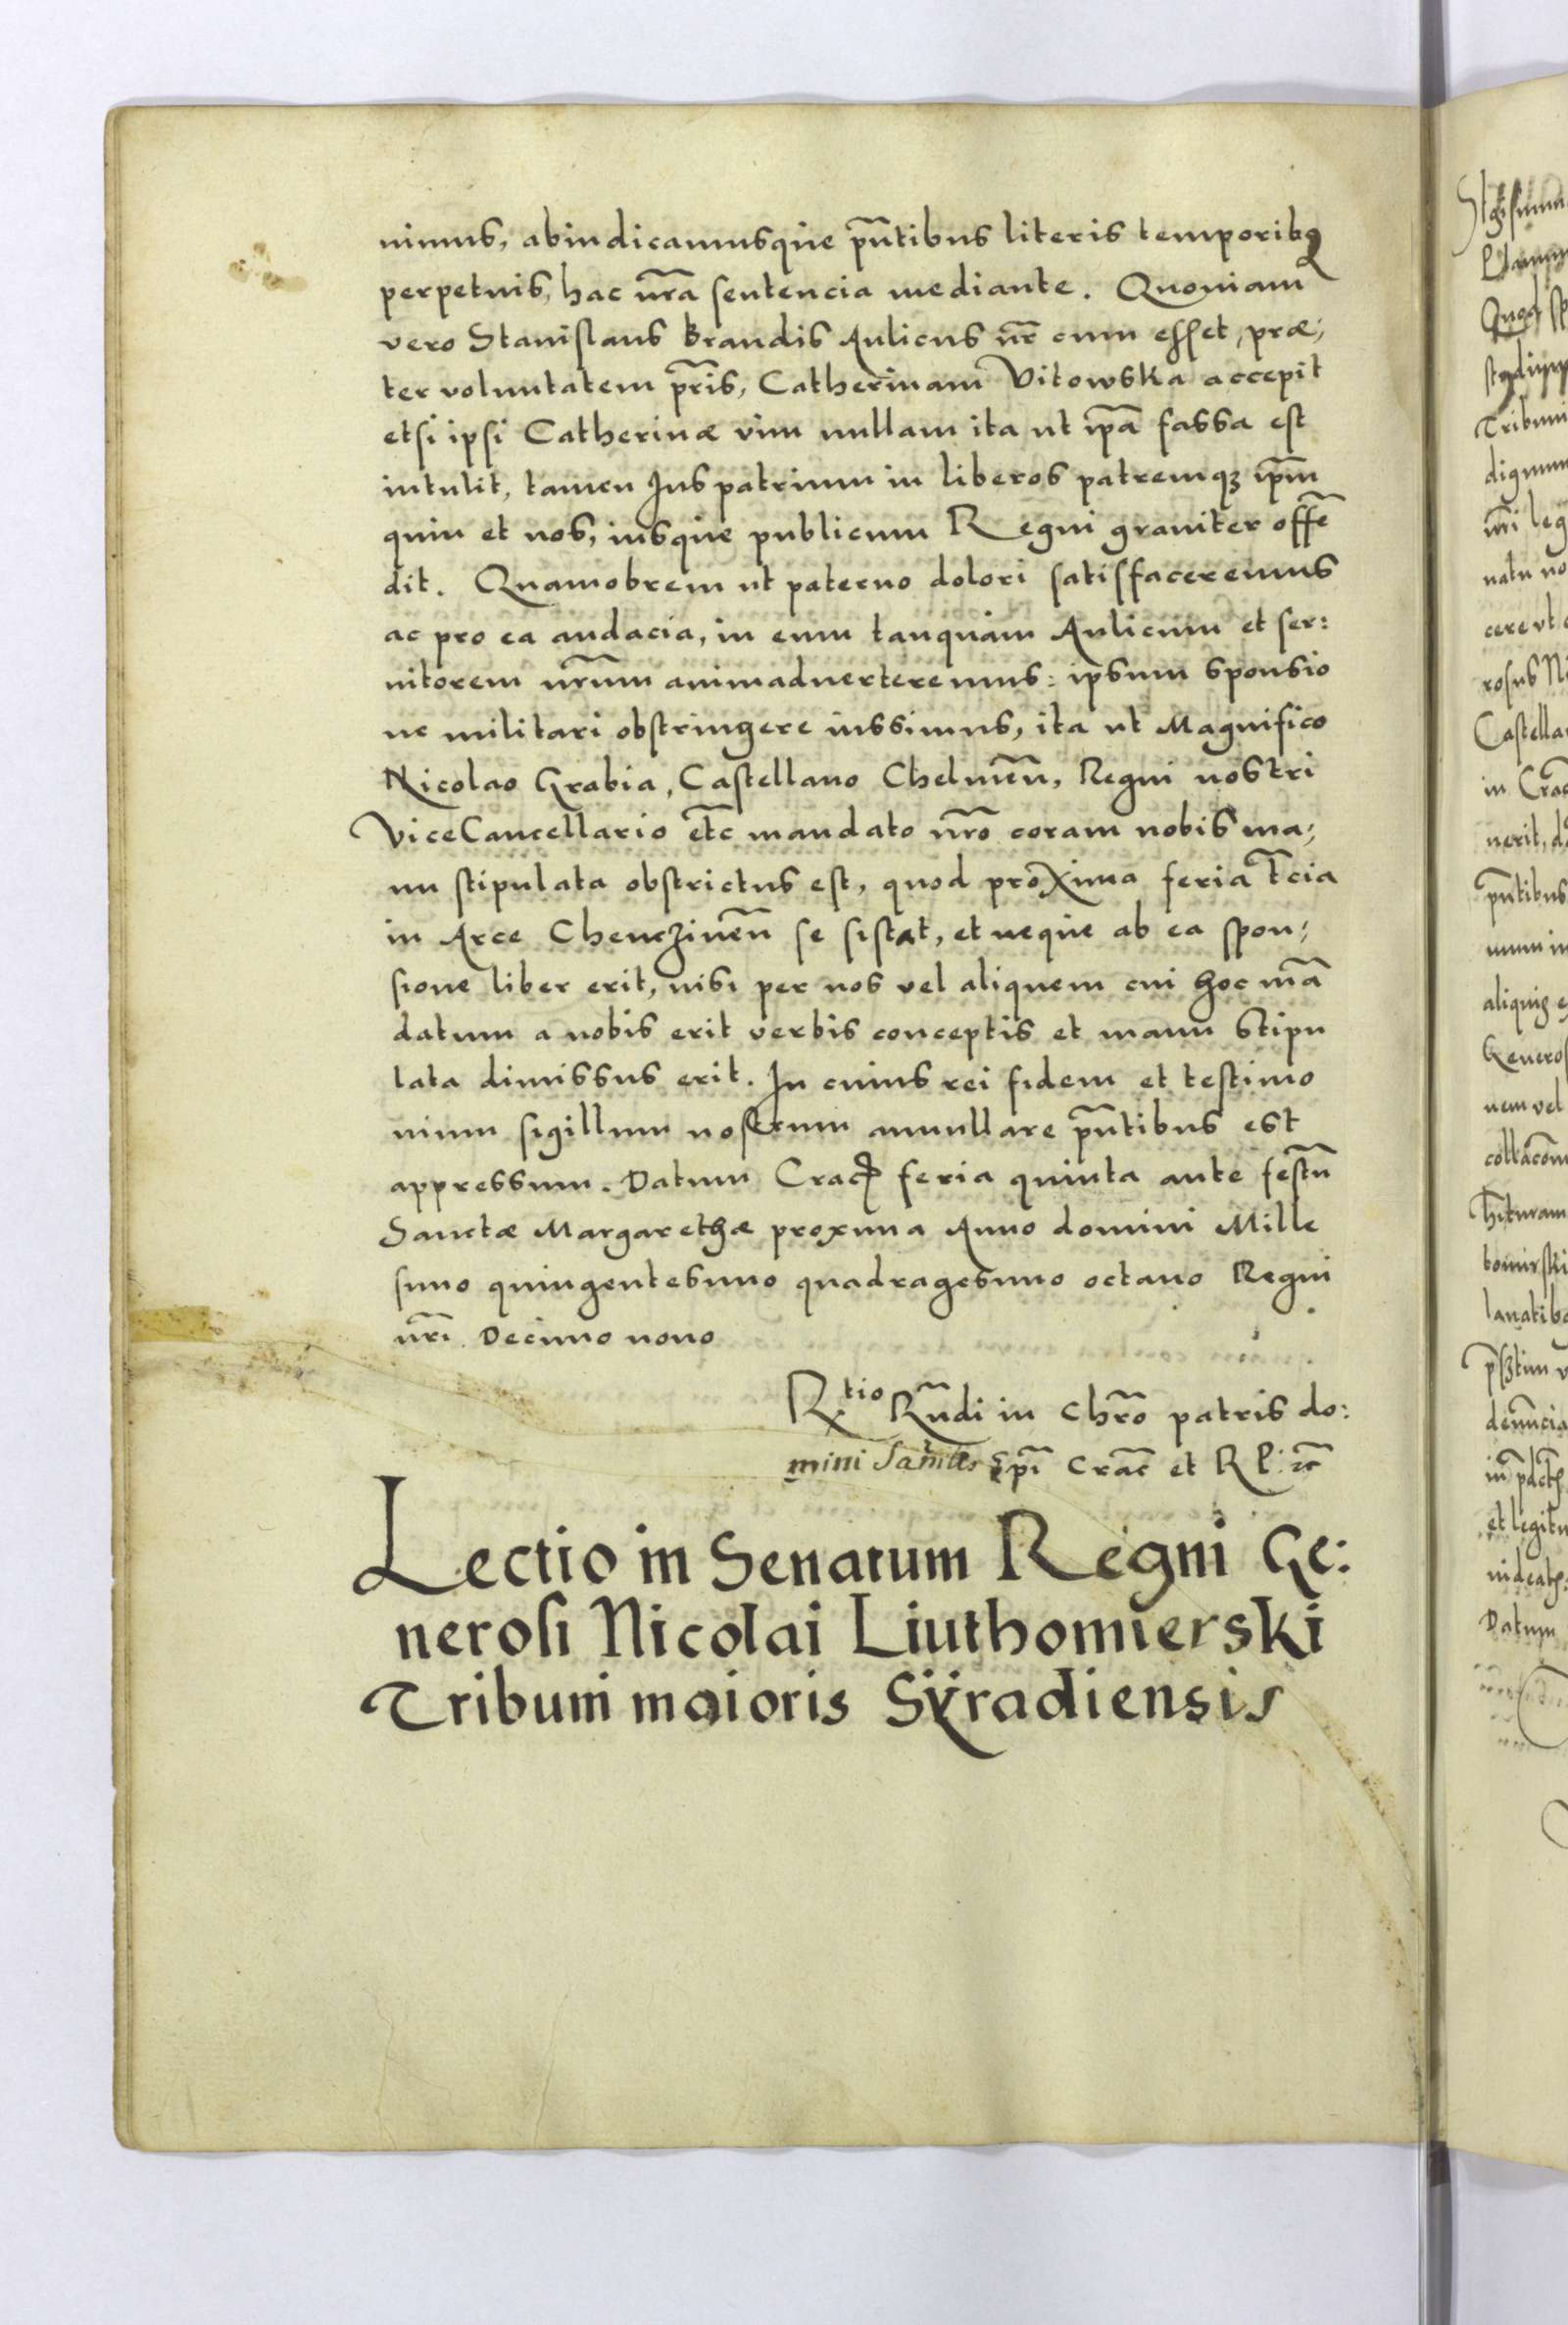 nimus, abiudicamusque pñtibus literis temporibꝫ
perpetuis, hac nr̃a sentencia mediante. Quoniam
vero Stanislaus Brandis Aulicus nr̃ cum esset, præ,
ter voluntatem pr̃is, Catherinam Vitowska accepit
etsi ipsi Catherinæ vim nullam ita ut ip̃a fassa est
intulit, tamen Jus patrium in liberos patremqꝫ ip̃m
quin et nos, iusque publicum Regni graviter offẽ
dit. Quamobrem ut paterno dolori satisfaceremus
ac pro ea audacia, in eum tanquam Aulicum et ser:
uitorem nr̃um animaduerteremus: ipsum sponsio
ne militari obstringere iussimus, ita ut Magnifico
Nicolao Grabia, Castellano Chelmeñ, Regni nostri
ViceCancellario etc̃ mandato nr̃o coram nobis ma,
nu stipulata obstrictus est, quod proxima feria tc̃ia
in Arce Chenczineñ se sistat, et neque ab ea spon,
sione liber erit, nisi per nos vel aliquem cui hoc mã
datum a nobis erit verbis conceptis et manu stipu
lata dimissus erit. In cuius rei fidem et testimo
nium sigillum nostrum annullare pñtibus est
appressum. Datum Cracꝭ feria quinta ante festũ
Sanctæ Margarethæ proxima Anno domini Mille
simo quingentesimo quadragesimo octauo Regni
nr̃i Decimo nono
R.tio Rñdi in Chr̃o patris do:
mini Samuelis Ep̃i Crac̃ et R P. etc̃
Lectio in Senatum Regni Ge:
nerosi Nicolai Liuthomierski
Tribuni maioris Sÿradiensis